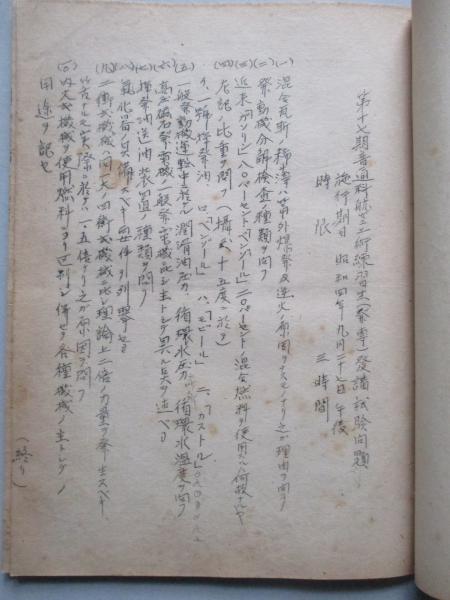 第十七期普通科航空工術練習生(発専)発講試験問題
施行期日 昭和四年九月二十七日午後
時限 三時間
(一) 混合瓦斯ノ稀薄ハ第外爆発及逆火ノ原因ヲナスモノナリ之ガ理由ヲ問フ
(二) 発動機分解検査ノ種類ヲ問フ
(三) 近来ガソリン八〇パーセントベンゾール二〇パーセントノ混合燃料ヲ使用スル何故ナルヤ
(四) 左記ノ比重ヲ問フ(摂氏十五度ニ於テ)
イ、一号揮発油 ロ、「ベンゾール」 ハ、「モビール」 ニ、「カストル」
(五) 一般発動機運転中ニ於ケル潤滑油圧力、循環水圧力、循環水温度ヲ問フ
(六) 高圧磁石発電機ト一般発電機ト比シ主トシテ異ル点ヲ述ベヨ
(七) 揮発油送油装置ノ種類ヲ問フ
(八) 気化器ノ具備スベキ要件ヲ列挙セヨ
(九) 二衝式機械ハ同大ノ四衝式機械ニ比シ理論上二倍ノ力量ヲ発生スベキ
筈ナルモ実際ニ於テハ一・五倍ナリ之ガ原因ヲ問フ
(十) 内火式機械ヲ使用燃料ニヨリ区別シ併セテ各種機械ノ主トシテノ
用途ヲ記セ
(終り)